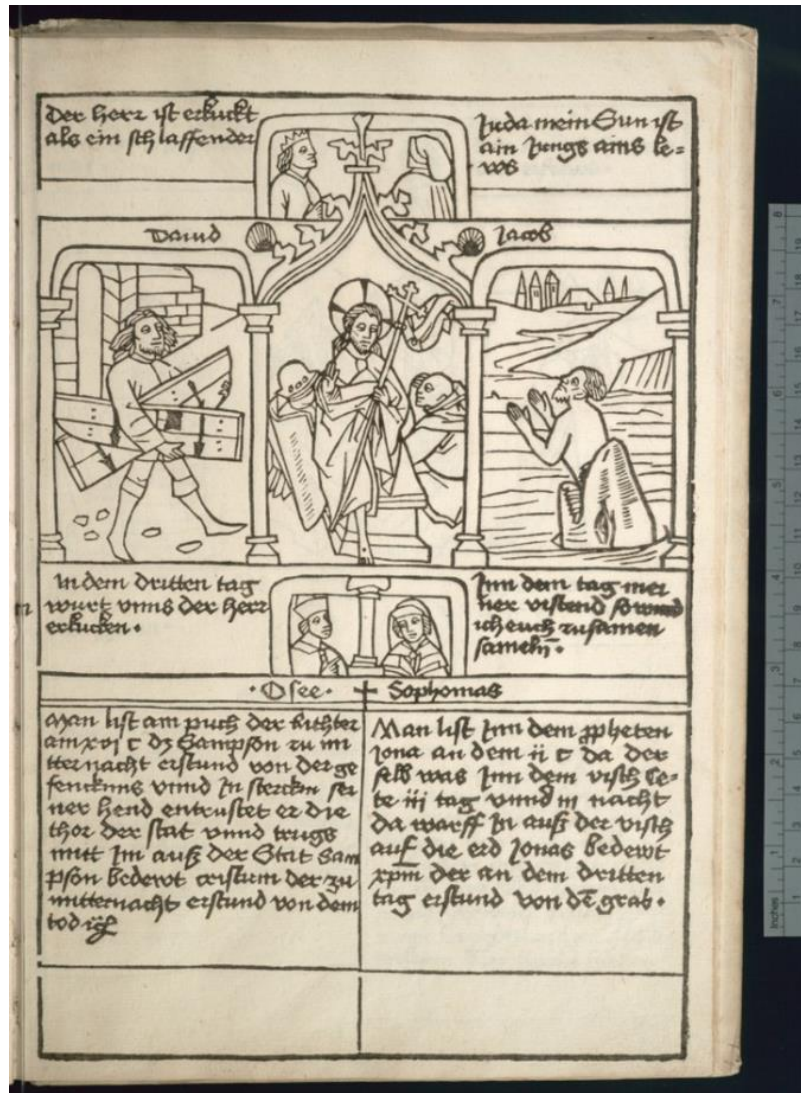 Der herr ist erkuckt
als ein schlaffender
Juda mein Sun ist
ain Jungs ains le=
ws
Dauid
Jacob
In dem dritten tag
wurt vnns der herr
erkucken.
Inn dem tag mei
ner vistend so
ich euch zusamen
sameln̄.
n
·Osee·
Sophonias
Man list am puch der Richter
am xvi c dz Sampson zu mi
tternacht erstund von der ge
fencknus vnnd In stercken sei
ner hend entrustet er die
thor der stat vnnd trugs
mitt Im auß der Stat Sam
pson bedewt cristum der zu
mitternacht erstund von dem
tod
Man list Inn dem ꝓpheten
Jona an dem ii c da der
selb was Inn dem visch le=
te iii tag vnnd iii nacht
da warff In auß der visch
auf die erd Jonas bedewt
xp̄m der an dem dritten
tag erstund von dē grab.
Inches
1
2
3
4
5
6
7
8